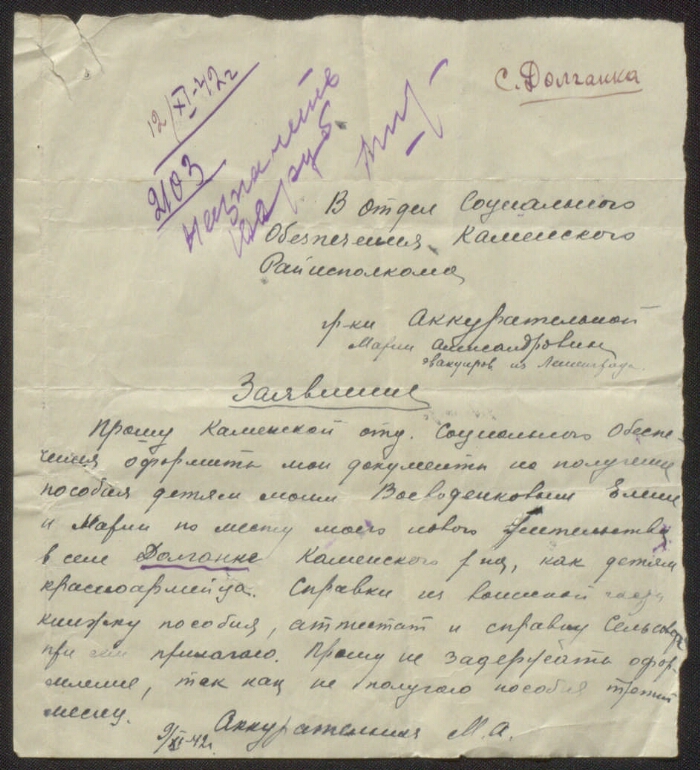 с. Долганка
12/XI-42 г
2103
назначить
В отдел Социального
Обезпечения Каменского
Райисполкома
гр-ки Аккурательной
Марии Александровны
эвакуиров из Ленинграда.
Заявление
Прошу Каменской отд. Социального Обеспе-
чения оформить мои документы на получение
пособия детям моим Воеводенковым Елене
и Марии по месту моего нового жительства
в селе Долганке Каменского р-на, как детям
красноармейца. Справки из воинской части
книжку пособия, аттестат и справку Сельсовета
при сем прилагаю. Прошу не задержать офор-
мление, так как не получаю пособия третий
месяц.
9/XI-42 г. Аккурательная М.А.